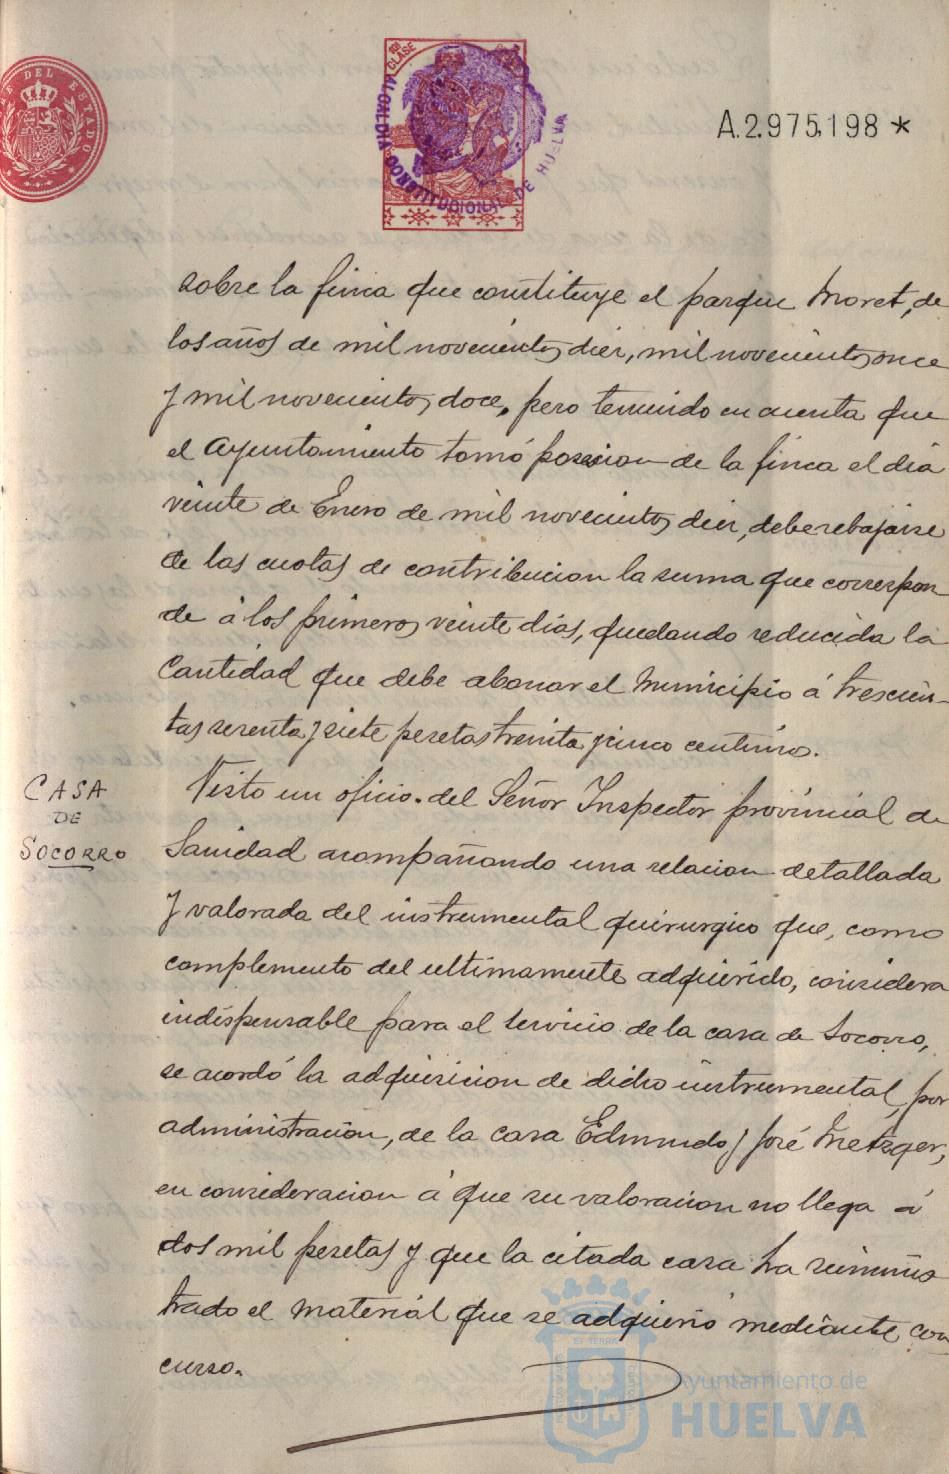 DEL ESTADO
10ª CLASE
ALCALDIA CONSTITUCIONAL DE HUELVA
A.2.975,198 *
sobre la finca que constituye el parque Moret, de
los años de mil novecientos diez, mil novecientos once
y mil novecientos doce, pero teniendo en cuenta que
el Ayuntamiento tomó posesion de la finca el dia
veinte de Enero de mil novecientos diez, debe rebajarse
de las cuotas de contribucion la suma que correspon
de á los primeros veinte dias, quedando reducida la
cantidad que debe abonar el Municipio á trescien-
tas sesenta y siete pesetas treinta y cinco centimos.
CASA
DE
SOCORRO
Visto un oficio del Señor Inspector provincial de
Sanidad acompañando una relacion detallada
y valorada del instrumental quirurgico que, como
complemento del ultimamente adquirido, considera
indispensable para el servicio de la casa de Socorro,
se acordó la adquisicion de dicho instrumental, por
administracion, de la casa Edmundo y José Metzger,
en consideracion á que su valoracion no llega á
dos mil pesetas y que la citada casa ha suminis
trado el material que se adquirió mediante con
curso.
Ayuntamiento de
HUELVA